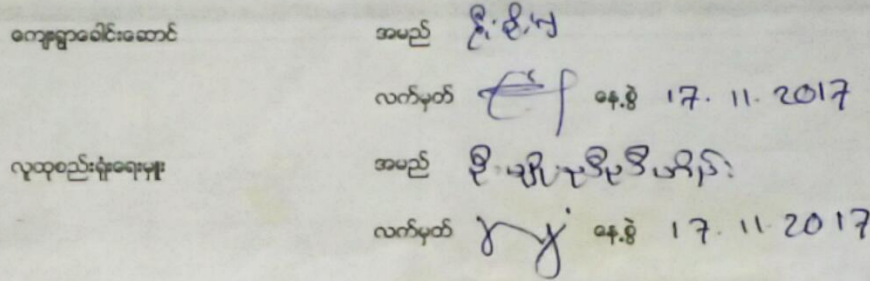 ကျေးရွာခေါင်းဆောင် အမည်
လက်မှတ် နေ့စွဲ 17. 11. 2017
လူထုစည်းရုံးရေးမှူး အမည်
လက်မှတ် နေ့စွဲ 17. 11. 2017